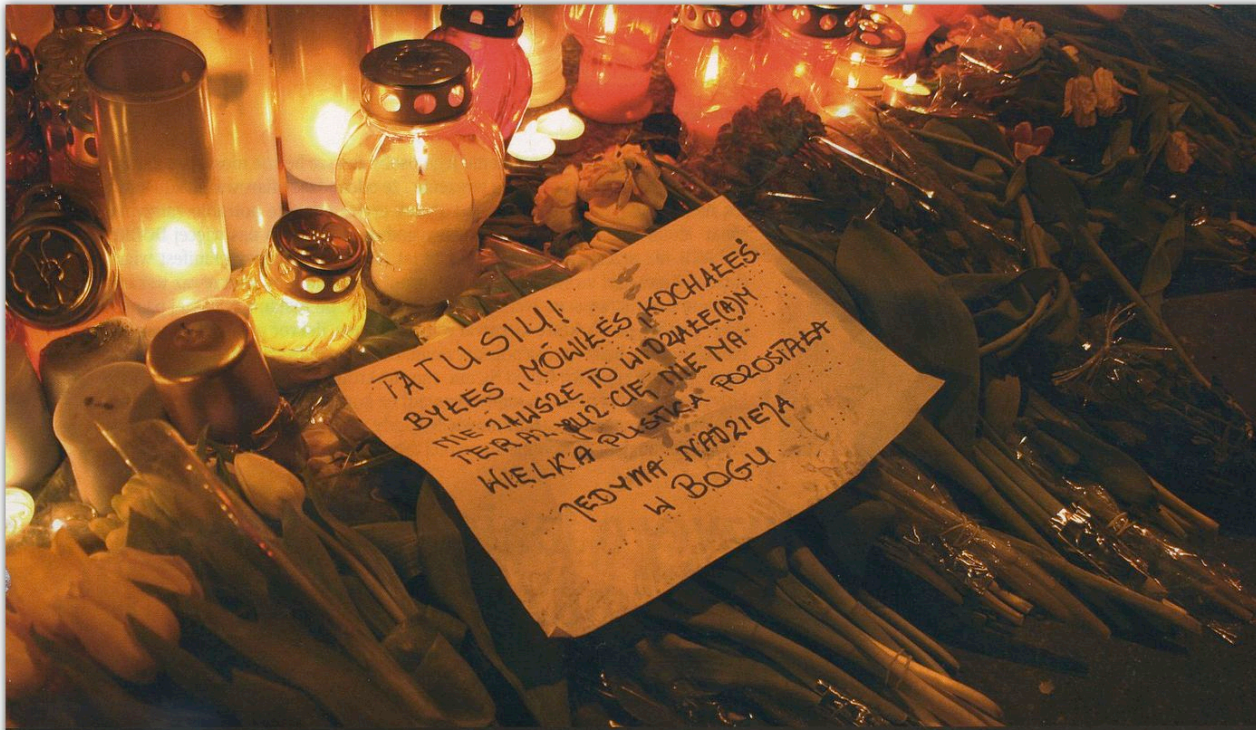 TATUSIU!
BYŁEŚ, MÓWIŁEŚ, KOCHAŁEŚ
NIE ZAWSZE TO WIDZIAŁE(A)M
TERAZ JUŻ CIĘ NIE MA
WIELKA PUSTKA POZOSTAŁA
JEDYNA NADZIEJA
W BOGU